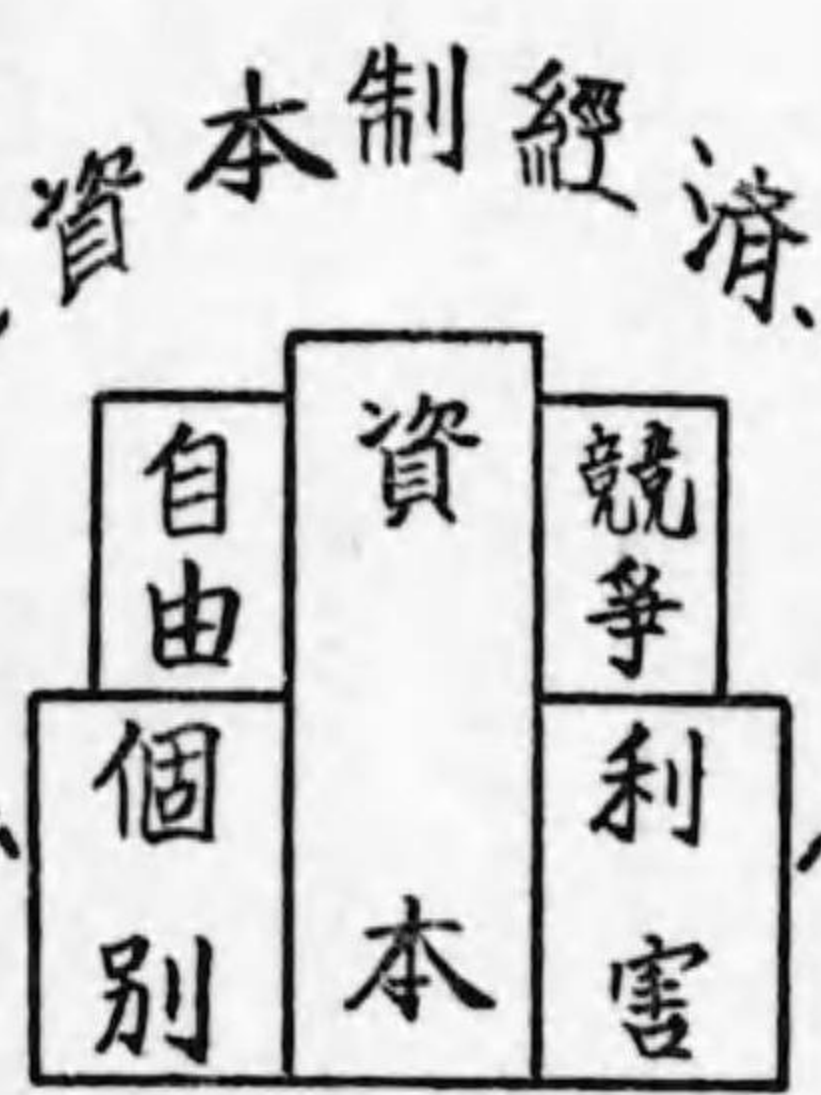 資本制經済
自由
資本
競爭
個別
利害